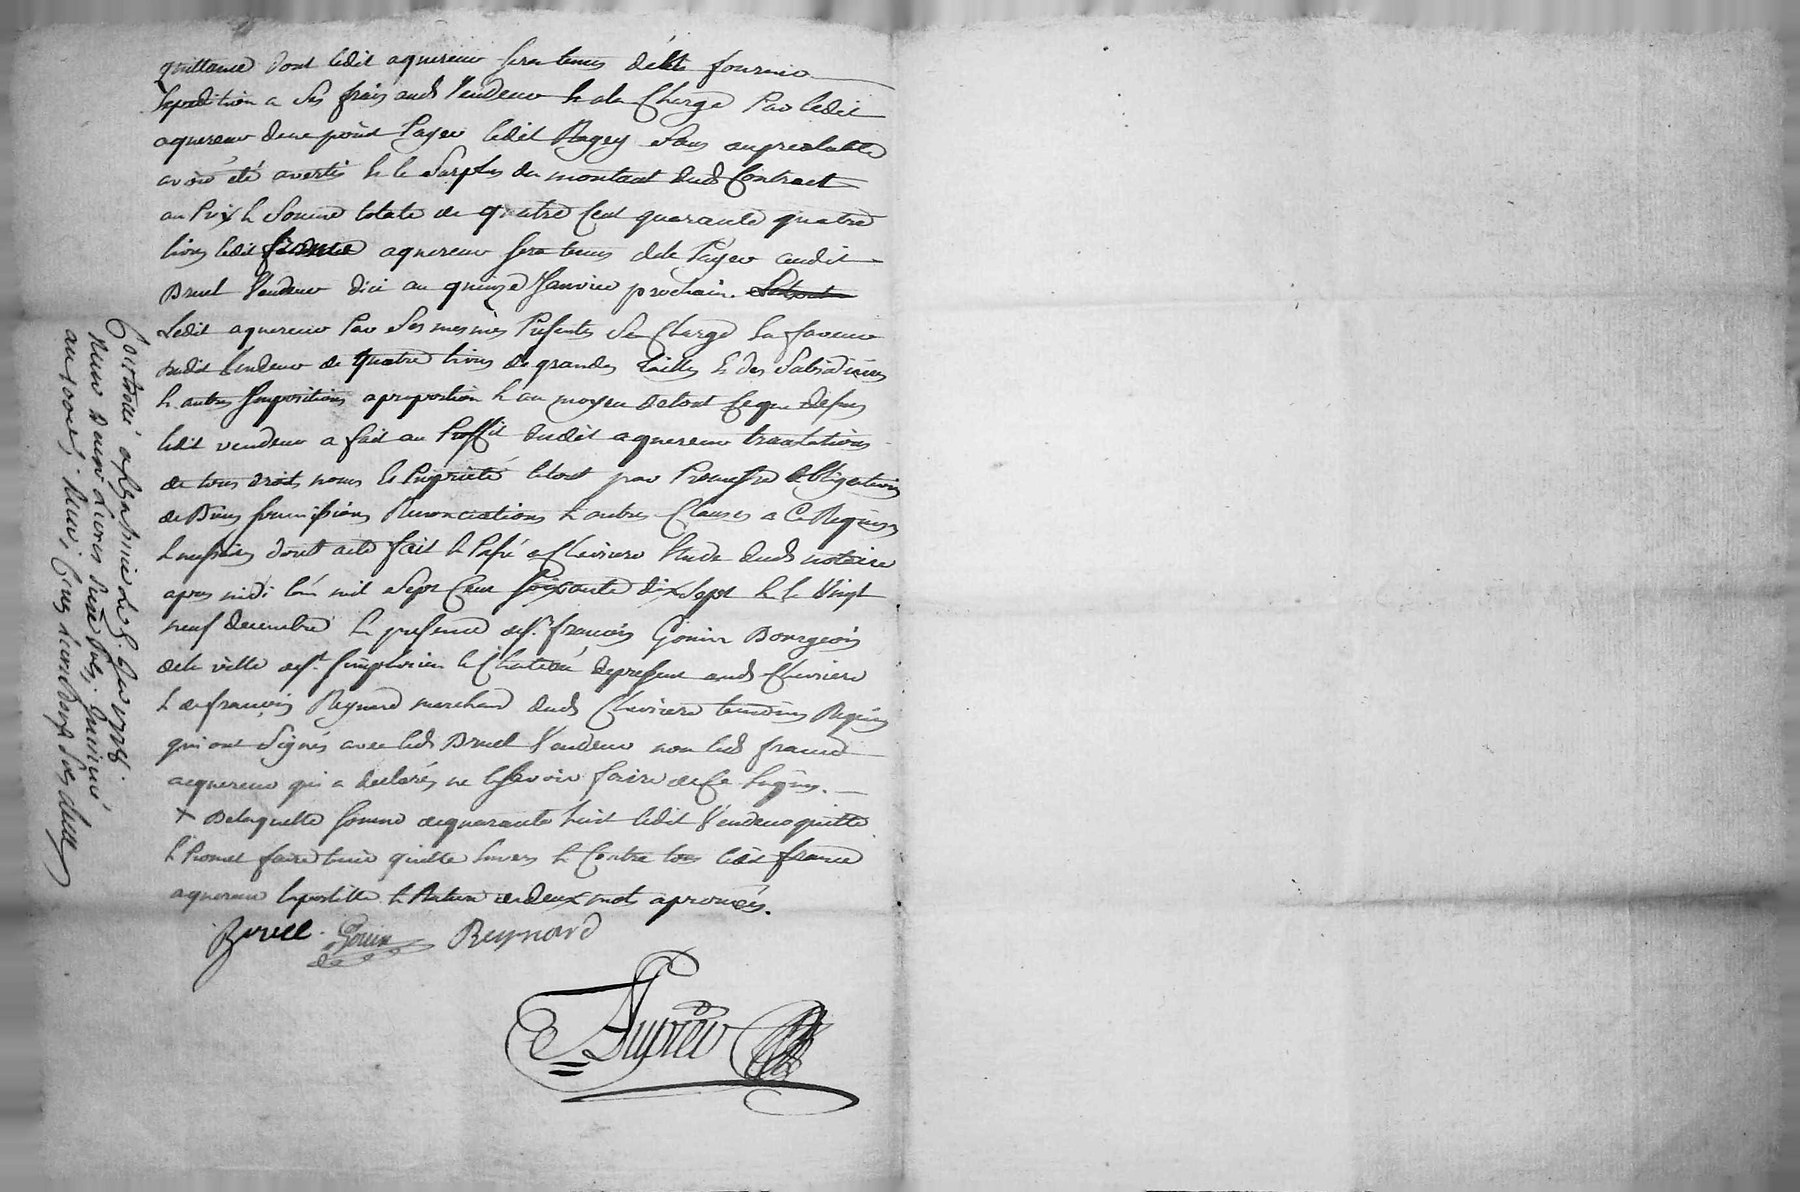 quittance dont ledit aquereur sera tenus de lui fournir
Expedition a ses frais aud Vendeur & a la Charge Par ledit
aquereur de ne point Payer ledit Ragey sans auprealable
avoir été avertis & le Surplus du montant dud Contract
au Prix & Somme totale de quatre Cent quarante quatre
livres ledit france aquereur sera tenus de le Payer audit
Bruel Vendeur dici au quinze Janvier prochain.
Ledit aquereur Par Ses mesmes Presentes Se Charge En faveur
dudit Vendeur de quatre livres de grandes Tailles & des Subsidiaires
& autres Impositions a proportion & au moyen de tout ce que dessus
ledit vendeur a fait au Proffit dudit aquereur translations
de tous droits noms & Proprieté le tout par Promesse Obligations
de Biens soumissions Renonciations & autres Clauses a Ce Requises
& necessaires dont acte fait & Passé a Chevriere Etude dud notaire
apres midi l'an mil Sept Cent soixante dix Sept & le Vingt
neuf decembre En presence de sr. francois Gonin Bourgeois
de la ville de st. Simphorien le Chateau de present aud Chevriere
& de francois Reynard marchand dud Chevriere temoins Requis
qui ont Signés avec led Bruel Vendeur non led france
acquereur qui a declarés ne le Scavoir faire de Ce Enquis.
+ De laquelle somme de quarante huit ledit Vendeur quitte
& Promet faire tenir quitte Envers & Contre tous ledit france
aquereur Lapostille & Rature de deux mot aprouvés.
Bruel. Gonin Reynard
Dupréer
Controllé a St. le 8. Jer 1778.
Reçu